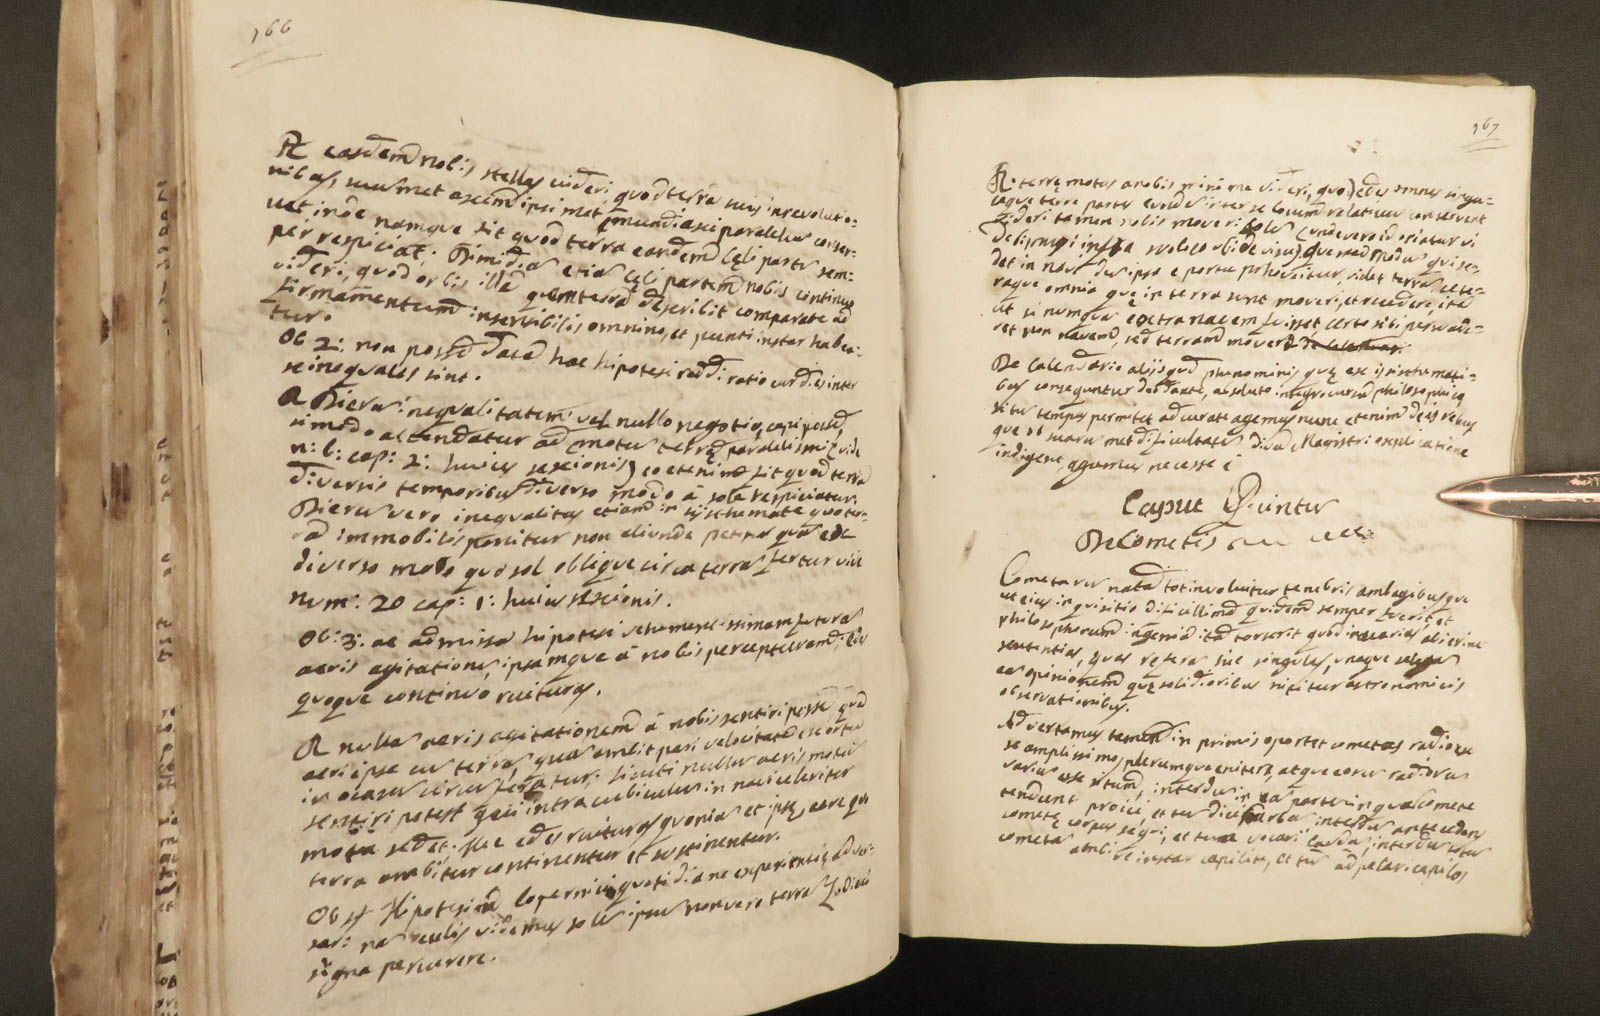 166
R easdem nobis stellas videri, quod terra suis in revolutio=
nibus, suummet axem ipsimet mundi axi paralelum conser=
vet, inde namque fit quod terra eandem cęli parte sem=
per respiciat. Dimidiam etiam cęli partem nobis continuo
videri, quod orbis ille quem terra describit comparate ad
firmamentum insensibilis omnino, et puncti instar habea=
tur.
Ob 2: non posse data hac hipotesi reddi ratio cur dies inter
se inequales sint.
R Dierum inequalitatem vel nullo negotio capi posse,
simodo attendatur ad motum terrę paralelismi vide
n: 6: cap: 2: huius sexionis) eo etenim fit quod terra
diversis temporibus diverso modo á sole respiciatur.
Dierum vero inequalitas etiam in sistemate quo ter=
ra immobilis ponitur non aliunde petitur quam ex
diverso modo quo sol oblique circa terram fertur vide
num: 20 cap: 1: huius sexionis.
Ob: 3: ac admissa hipotesi vehementissimam futuram
aeris agitationem, ipsamque á nobis percepturam, edes
quoque continuo ruituras.
R nullam aeris agitationem á nobis sentiri posse quod
aer ipse cum terra, quam ambit pari velocitate ex ortu
in ocasum circumferatur; sicuti nullus aeris motus
sentiri potest qui intra cubiculum in navi celeriter
mota sedet. Nec edes ruituras quoniam et ipsę, aere qui
terram ambitur continentur et sustinentur.
Ob 4 Hipotesim Copernici quotidiane experientię adver=
sari: nam oculis videmus solem ipsum non vero terram Zodiaci
signa percurere.
167
R: terrę motus a nobis minime videri, quod edes omnes singu=
leque terre partes eundem inter se locum relativum conservent
videri tamen nobis moveri solem
det in navi dum ipsa e portu prhovitur, videt terram cete=
raque omnia quę in terra sunt moveri, et recedere, ita
ut si nunquam extra navem fuisset certo sibi persuade=
ret non navem, sed terram moveri
De Calendario alijsque phenominis quę ex ijs sistemati=
bus consequuntur deo dante, absoluto integro cursu philosophico
si tempus permitet ad curate agemus nunc etenim de ijs rebus
que ob suammet dificultatem diva Magistri explicatione
indigent, agamus necesse ẽ
Caput Quintum
De Cometis
Cometarum natura tot involvitur tenebris ambagibusque
ut eius inquisitio dificillima quidem semper fuerit et
philosophorum ingenia ita torserit quod in varias abierint
sententias, quas refera sie singulas, unaque
ea opinionem quę solidioribus nititur astronomicis
observationibus.
Advertamus tamen in primis oportet cometas radios ex
se amplissimos plerumque emitere, atque eorum radiorum
varium esse situm, interdum in ea partem in qua comete
tendunt proici, et tum dici barba interdum antecedens
cometę corpus sequi, et tum vocari cauda, interdum totum
cometam ambire instar capilitii, et tum adpelari capilos